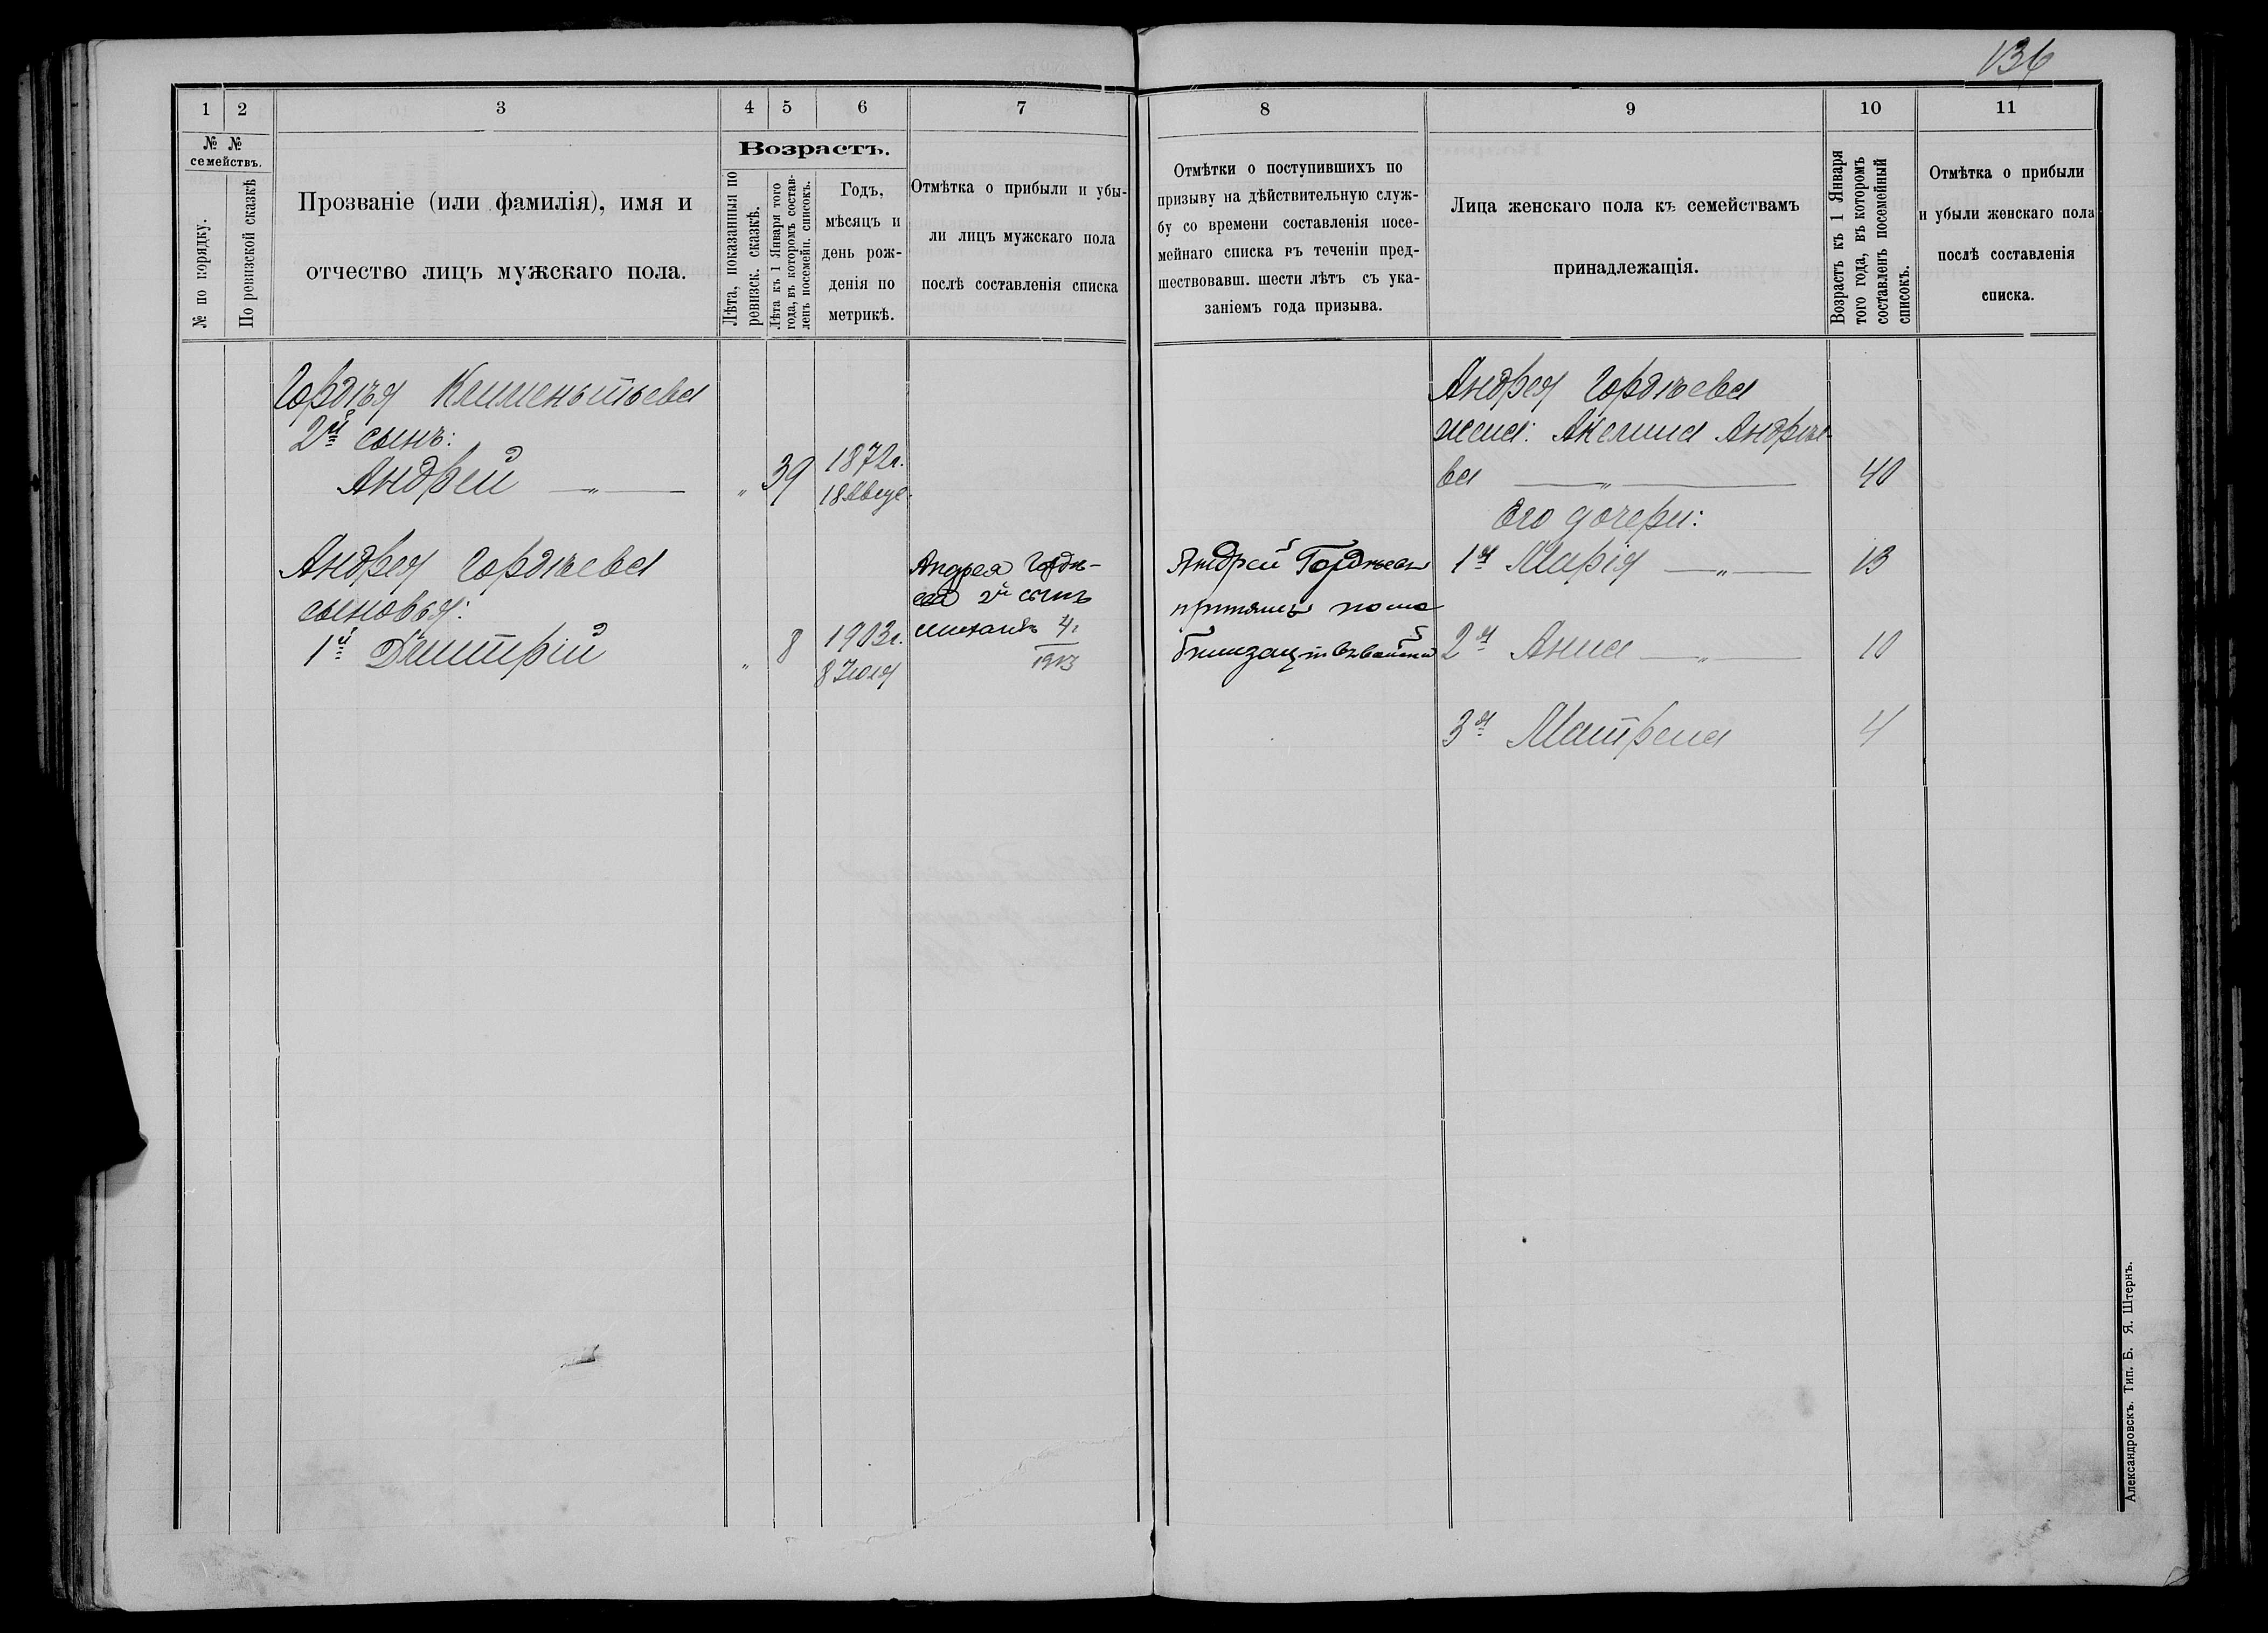 136
1
2
3
4
5
6
7
8
9
10
11
№ №
семействъ.
№ по порядку.
По ревизской сказкѣ
Прозваніе (или фамилія), имя и
отчество лицъ мужскаго пола.
Возрастъ.
Лѣта, показанныя по
ревизск. сказкѣ.
Лѣта къ 1 Января того
года, въ которомъ состав-
ленъ посемейн. списокъ.
Годъ,
мѣсяцъ и
день рож-
денія по
метрикѣ.
Отмѣтка о прибыли и убы-
ли лицъ мужскаго пола
послѣ составленія списка
Отмѣтки о поступившихъ по
призыву на дѣйствительную служ-
бу со времени составленія посе-
мейнаго списка въ теченіи пред-
шествовавш. шести лѣтъ съ ука-
заніемъ года призыва.
Лица женскаго пола къ семействамъ
принадлежащія.
Возрастъ къ 1 Января
того года, въ которомъ
составленъ посемейный
списокъ.
Отмѣтка о прибыли
и убыли женскаго пола
послѣ составленія
списка.
Гордѣя Клименьтьева
2й сынъ:
Андрей — „ —
„
39
1872г.
18 Авгус.
Андрея Гордѣева
сыновья:
1й Дмитрій
„
8
1903г.
8 Іюля
Андрея Гордѣ-
ева 2й сынъ
Михаилъ 4г
1913
Андрей Гордѣевъ
принятъ по мо
билизац.
Андрея Гордѣева
жена: Акелина Андрѣе-
ва — „ —
40
Его дочери:
1я Марія — „ —
13
2я Анна — „ —
10
3я Матрена
4
Александровскъ. Тип. Б. Я. Штернъ.